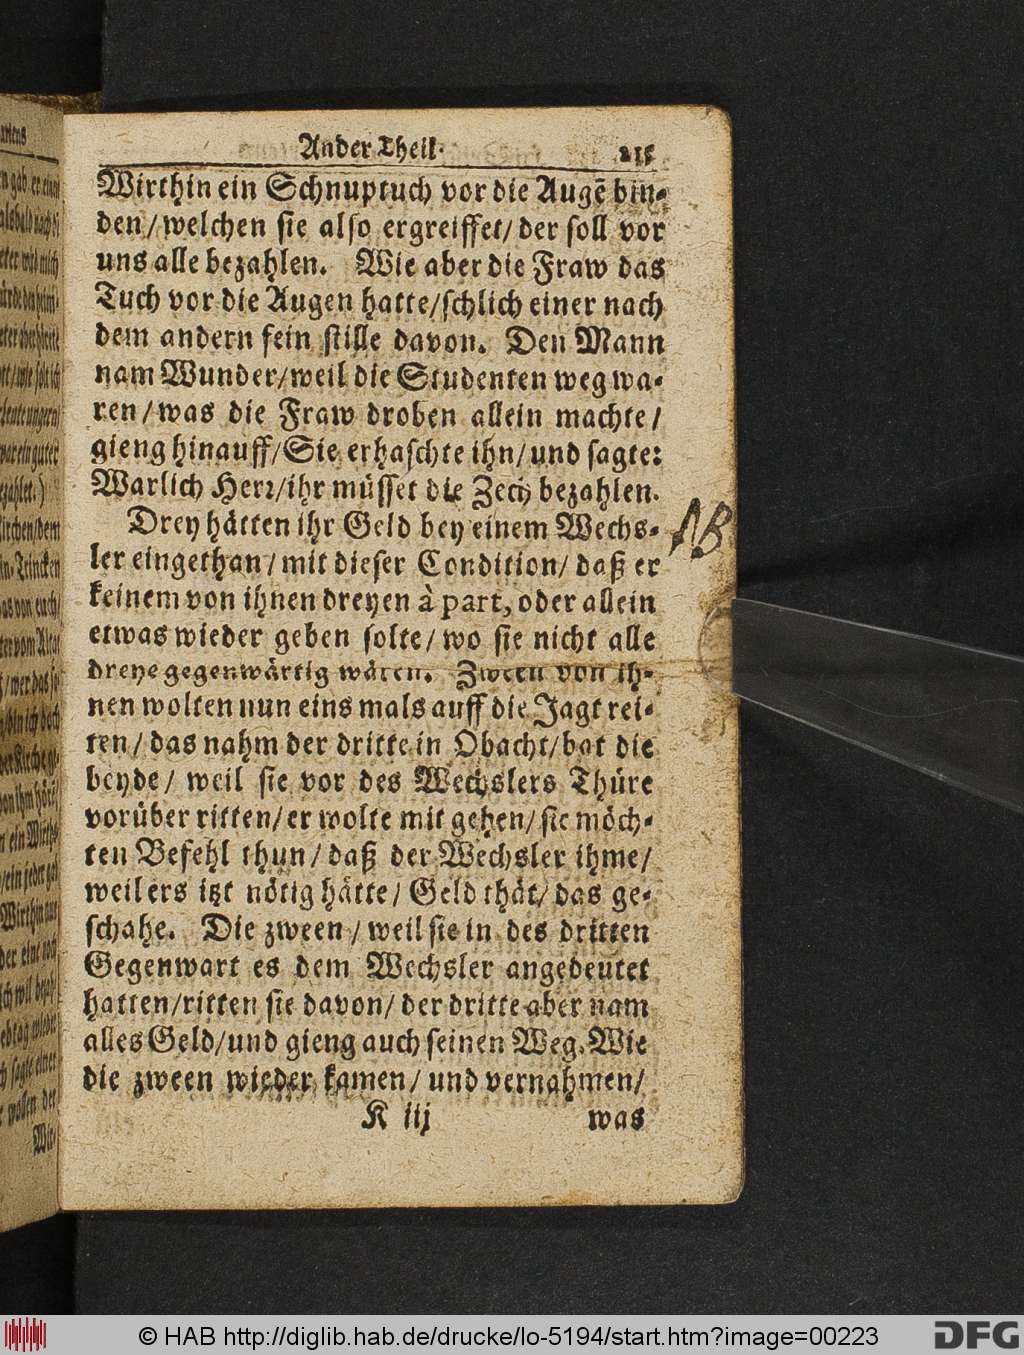 Ander Theil.
Wirthin ein Schnuptuch vor die Augē bin-
den/welchen sie also ergreiffet/der soll vor
uns alle bezahlen. Wie aber die Fraw das
Tuch vor die Augen hatte/schlich einer nach
dem andern fein stille davon. Den Mann
nam Wunder/weil die Studenten weg wa-
ren/was die Fraw droben allein machte/
gieng hinauff/Sie erhaschte ihn/und sagte:
Warlich Herr/ihr müsset die Zech bezahlen.
Drey hätten ihr Geld bey einem Wechs-
NB
ler eingethan/mit dieser Condition/daß er
keinem von ihnen dreyen à part, oder allein
etwas wieder geben solte/wo sie nicht alle
dreye gegenwärtig wären. Zween von ih-
nen wolten nun eins mals auff die Jagt rei-
ten/das nahm der dritte in Obacht/bat die
beyde/weil sie vor des Wechslers Thüre
vorüber ritten/er wolte mit gehen/sie möch-
ten Befehl thun/daß der Wechsler ihme/
weil ers itzt nötig hätte/Geld thät/das ge-
schahe. Die zween/weil sie in des dritten
Gegenwart es dem Wechsler angedeutet
hatten/ritten sie davon/der dritte aber nam
alles Geld/und gieng auch seinen Weg. Wie
die zween wieder kamen/und vernahmen/
K iij was
© HAB http://diglib.hab.de/drucke/lo-5194/start.htm?image=00223
DFG